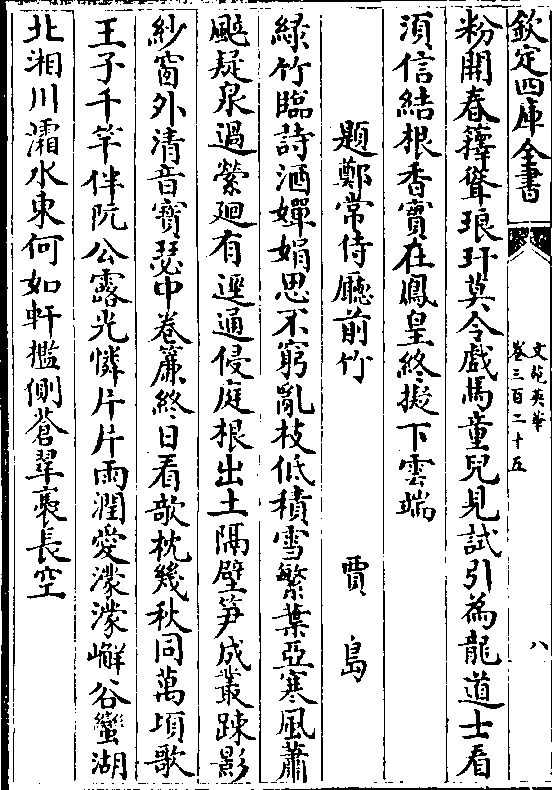 欽定四庫全書
文苑英華
卷三百二十五
八
粉開春籜聳琅玕莫令戲馬童兒見試引為龍道士看
須信結根香實在鳳皇終擬下雲端
題鄭常侍㕔前竹 賈島
綠竹臨詩酒嬋娟思不窮亂枝低積雪繁葉亞寒風蕭
颸疑泉過縈廻有逕通侵庭根出土隔壁笋成叢踈影
紗窗外清音寳瑟中卷簾終日看欹枕幾秋同萬頃歌
王子千竿伴阮公露光憐片片雨潤愛濛濛嶰谷蠻湖
北湘川灞水東何如軒檻側蒼翠裛長空